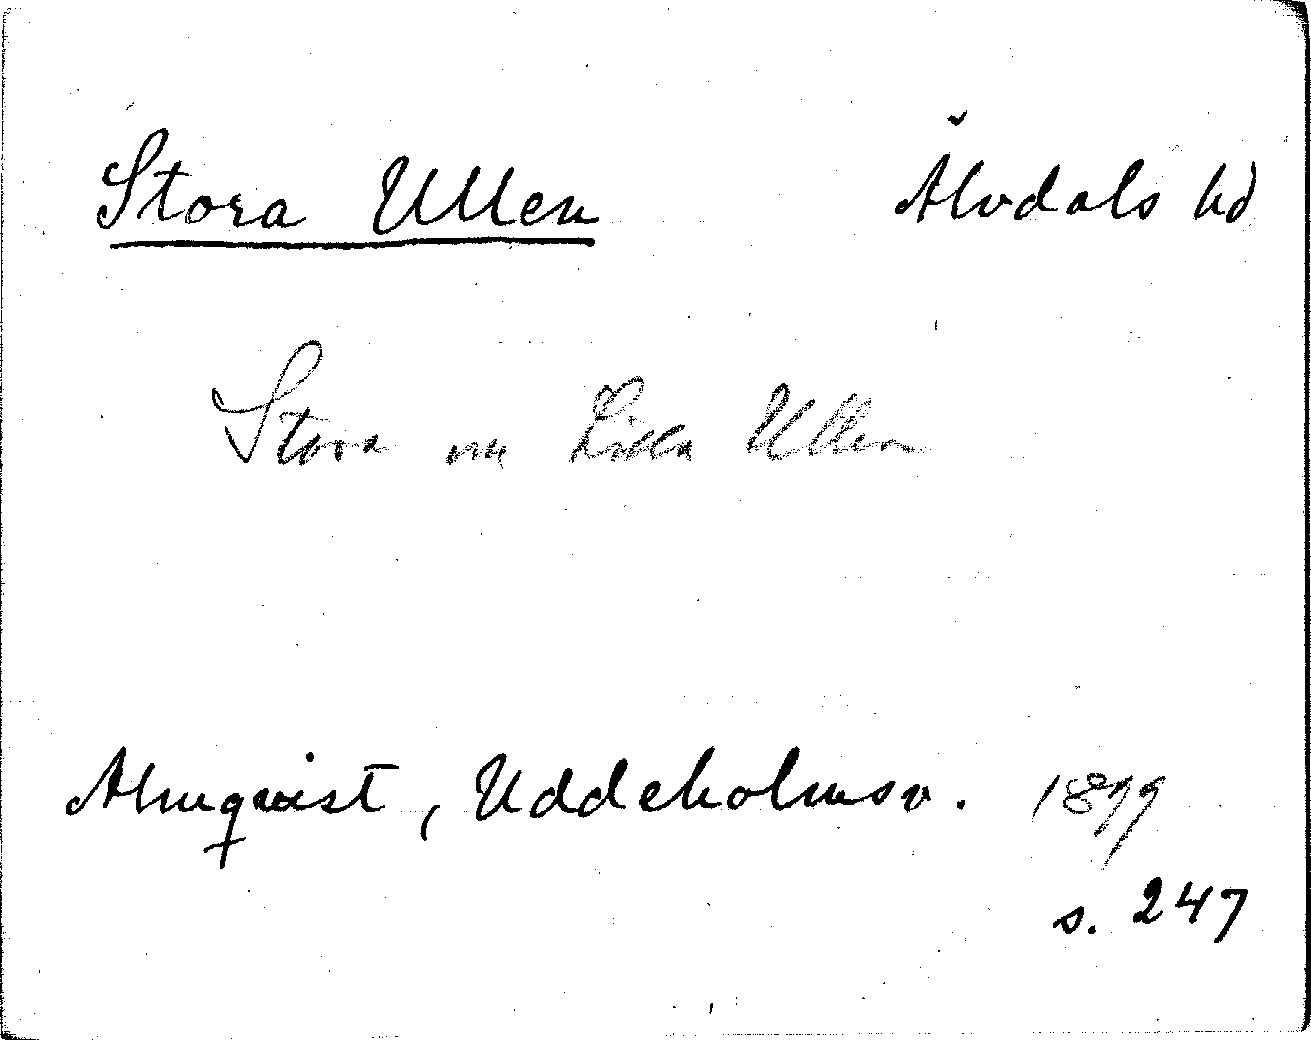 Stora Ullen Älvdals hd
Stora o. Lilla Ullen
Almqvist, Uddeholmsv. 1899
s. 247